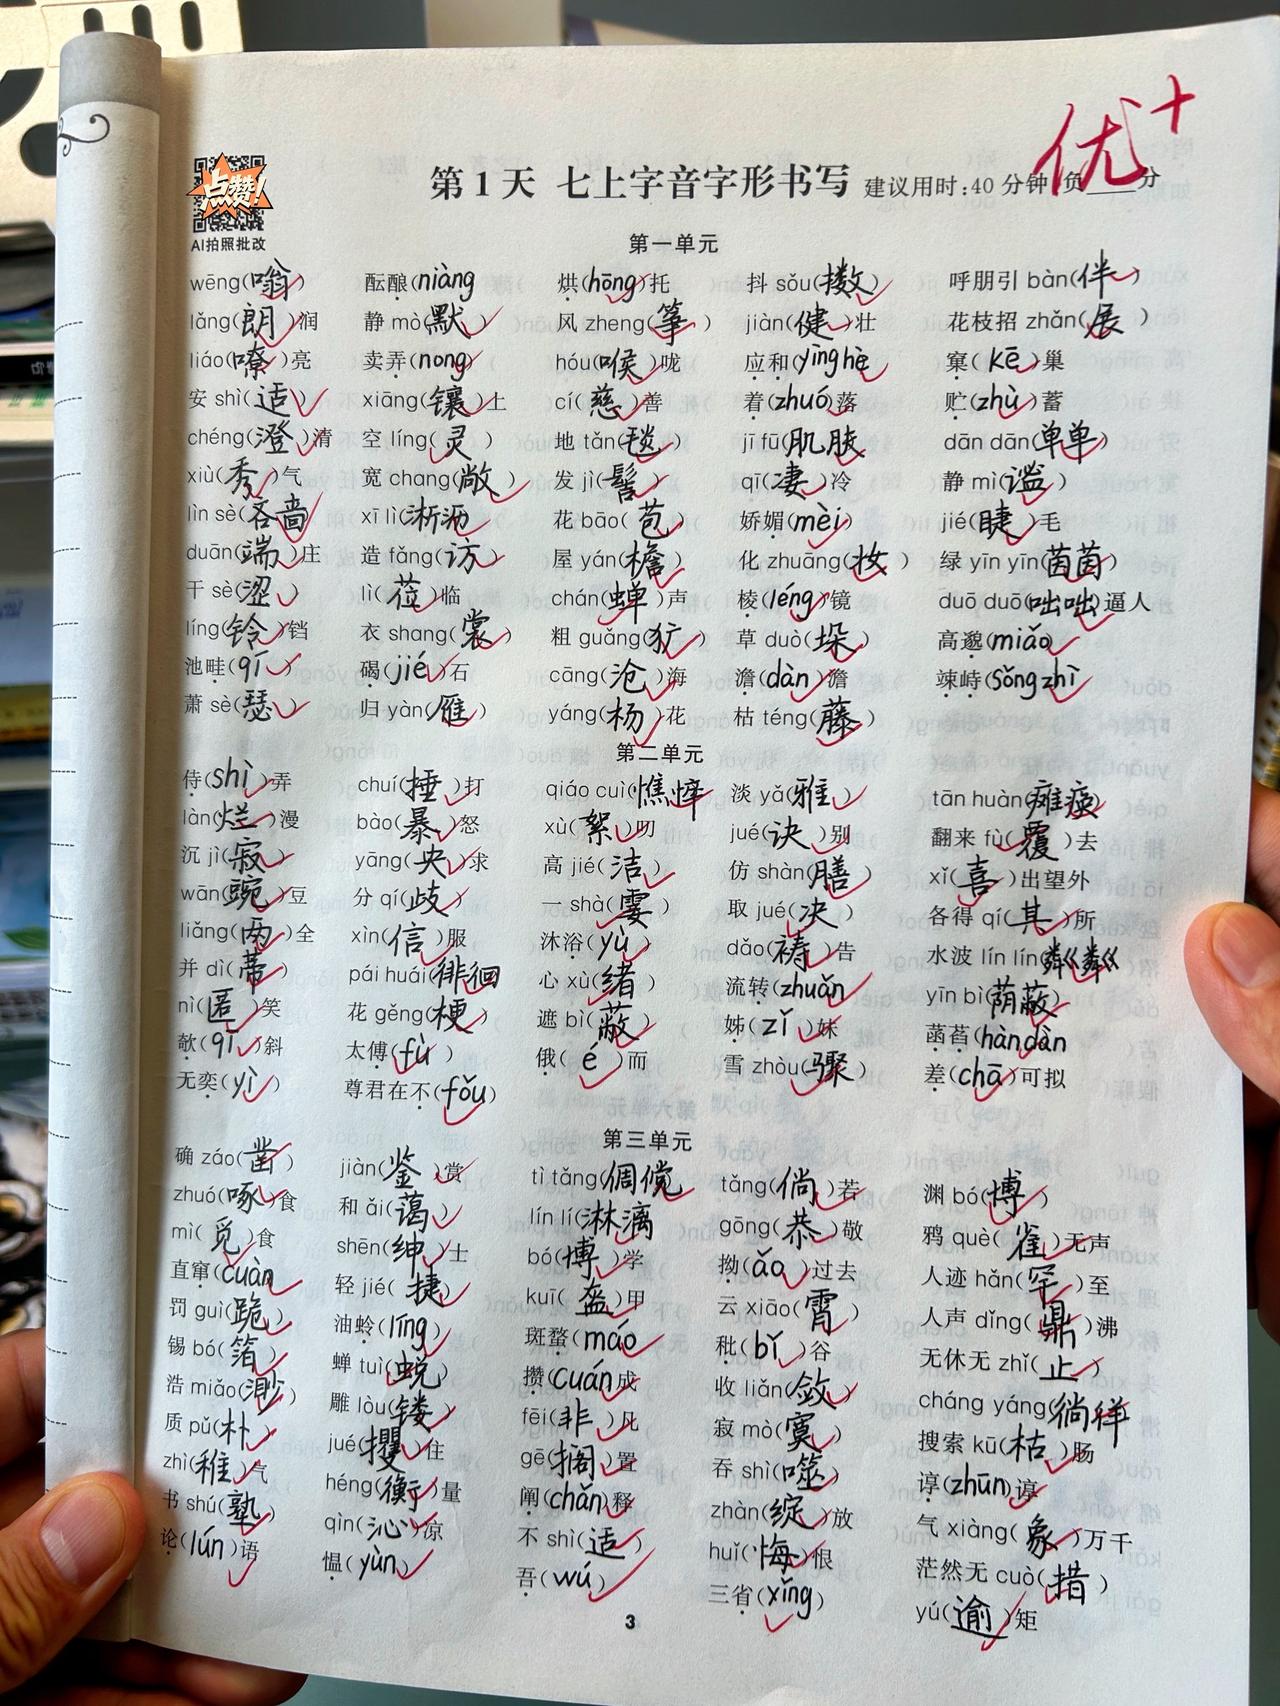 优+
点赞!
AI拍照批改
第1天 七上字音字形书写 建议用时:40分钟 负 分
第一单元
wēng(嗡) 酝酿(niàng 烘(hōng)托 抖 sǒu(擞) 呼朋引 bàn(伴)
lǎng(朗)润 静 mò(默) 风 zheng(筝) jiàn(健)壮 花枝招 zhǎn(展)
liáo(嘹)亮 卖弄(nong) hóu(喉)咙 应和(yìng hè 窠(kē)巢
安 shì(适) xiāng(镶)上 cí(慈)善 着(zhuó)落 贮(zhù)蓄
chéng(澄)清 空 líng(灵) 地 tǎn(毯) jī fū(肌肤 dān dān(单单)
xiù(秀)气 宽 chang(敞) 发 jì(髻) qī(凄)冷 静 mì(谧)
lìn sè(吝啬 xī lì(淅沥 花 bāo(苞) 娇媚(mèi) jié(睫)毛
duān(端)庄 造 fǎng(访) 屋 yán(檐) 化 zhuāng(妆) 绿 yīn yīn(茵茵)
干 sè(涩) lì(莅)临 chán(蝉)声 棱(léng)镜 duō duō(咄咄)逼人
líng(铃)铛 衣 shang(裳) 粗 guǎng(犷) 草 duò(垛) 高邈(miǎo)
池畦(qí) 碣(jié)石 cāng(沧)海 澹(dàn)澹 竦峙(sǒng zhì
萧 sè(瑟) 归 yàn(雁) yáng(杨)花 枯 téng(藤)
第二单元
侍(shì)弄 chuí(捶)打 qiáo cuì(憔悴 淡 yǎ(雅) tān huàn(瘫痪)
làn(烂)漫 bào(暴)怒 xù(絮)叨 jué(诀)别 翻来 fù(覆)去
沉 jì(寂) yāng(央)求 高 jié(洁) 仿 shàn(膳) xǐ(喜)出望外
wān(豌)豆 分 qí(歧) 一 shà(霎) 取 jué(决) 各得 qí(其)所
liǎng(两)全 xìn(信)服 沐浴(yù) dǎo(祷)告 水波 lín lín(粼粼
并 dì(蒂) pái huái(徘徊 心 xù(绪) 流转(zhuǎn yīn bì(荫蔽)
nì(匿)笑 花 gěng(梗) 遮 bì(蔽) 姊(zǐ)妹 菡萏(hàn dàn
欹(qī)斜 太傅(fù) 俄(é)而 雪 zhòu(骤) 差(chā)可拟
无奕(yì) 尊君在不(fǒu)
第三单元
确 záo(凿) jiàn(鉴)赏 tì tǎng(倜傥 tǎng(倘)若 渊 bó(博)
zhuó(啄)食 和 ǎi(蔼) lín lí(淋漓 gōng(恭)敬 鸦 què(雀)无声
mì(觅)食 shēn(绅)士 bó(博)学 拗(ǎo)过去 人迹 hǎn(罕)至
直窜(cuàn 轻 jié(捷) kuī(盔)甲 云 xiāo(霄) 人声 dǐng(鼎)沸
罚 guì(跪) 油蛉(líng) 斑蝥(máo 秕(bǐ)谷 无休无 zhǐ(止)
锡 bó(箔) 蝉 tuì(蜕) 攒(cuán成 收 liǎn(敛) cháng yáng(徜徉
浩 miǎo(渺) 雕 lòu(镂) fēi(非)凡 寂 mò(寞) 搜索 kū(枯)肠
质 pǔ(朴) jué(攫)住 gē(搁)置 吞 shì(噬) 谆(zhūn)谆
zhì(稚)气 héng(衡)量 阐(chǎn)释 zhàn(绽)放 气 xiàng(象)万千
书 shú(塾) qìn(沁)凉 不 shì(适) huǐ(悔)恨 茫然无 cuò(措)
论(lún)语 愠(yùn) 吾(wú) 三省(xǐng) yú(逾)矩
3